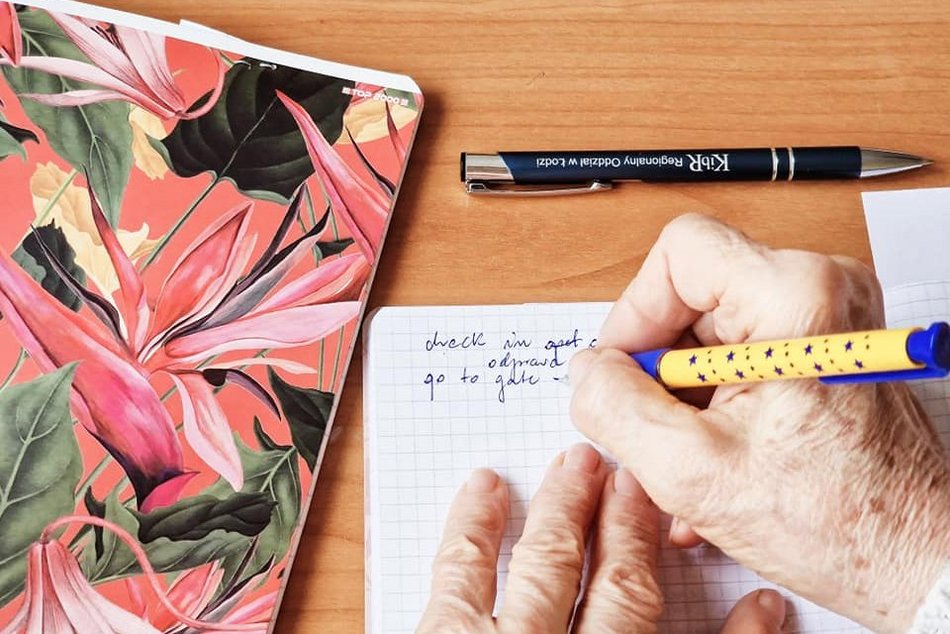 TOP 2000
KibR Regionalny Oddział w Łodzi
check in
odprawa
go to gate -